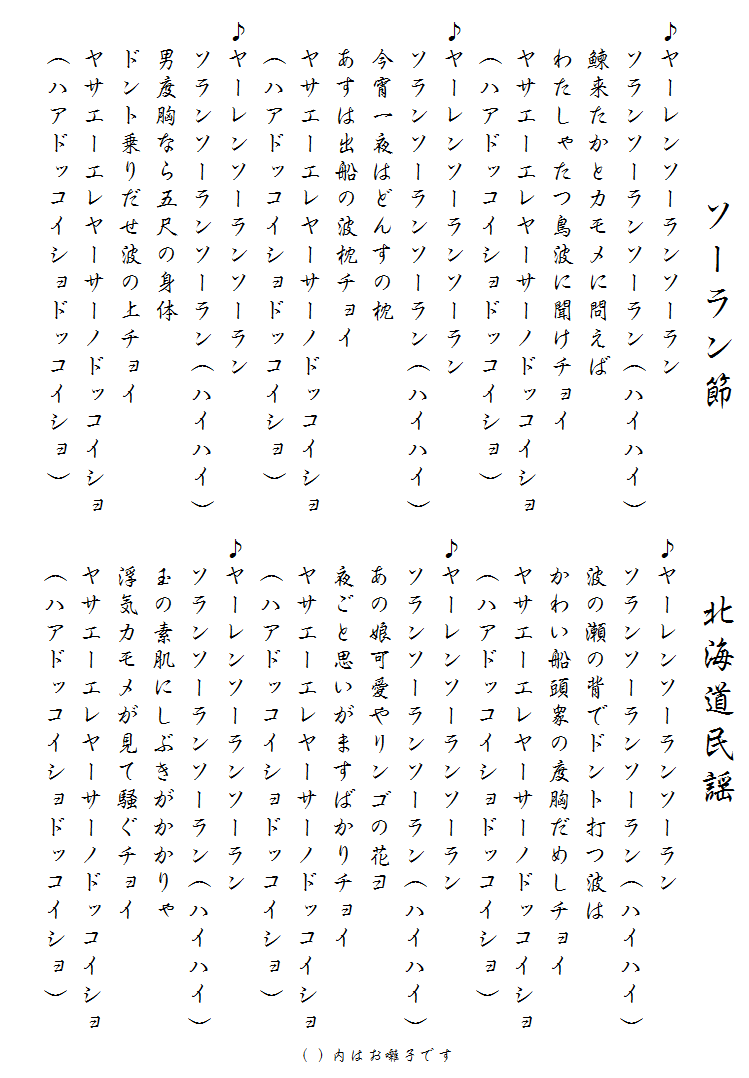 ソーラン節
北海道民謡
♪ヤーレンソーランソーラン
ソランソーランソーラン（ハイハイ）
鰊来たかとカモメに問えば
わたしゃたつ鳥波に聞けチョイ
ヤサエーエレヤーサーノドッコイショ
（ハアドッコイショドッコイショ）
♪ヤーレンソーランソーラン
ソランソーランソーラン（ハイハイ）
今宵一夜はどんすの枕
あすは出船の波枕チョイ
ヤサエーエレヤーサーノドッコイショ
（ハアドッコイショドッコイショ）
♪ヤーレンソーランソーラン
ソランソーランソーラン（ハイハイ）
男度胸なら五尺の身体
ドント乗りだせ波の上チョイ
ヤサエーエレヤーサーノドッコイショ
（ハアドッコイショドッコイショ）
♪ヤーレンソーランソーラン
ソランソーランソーラン（ハイハイ）
波の瀬の背でドント打つ波は
かわい船頭衆の度胸だめしチョイ
ヤサエーエレヤーサーノドッコイショ
（ハアドッコイショドッコイショ）
♪ヤーレンソーランソーラン
ソランソーランソーラン（ハイハイ）
あの娘可愛やリンゴの花ヨ
夜ごと思いがますばかりチョイ
ヤサエーエレヤーサーノドッコイショ
（ハアドッコイショドッコイショ）
♪ヤーレンソーランソーラン
ソランソーランソーラン（ハイハイ）
玉の素肌にしぶきがかかりゃ
浮気カモメが見て騒ぐチョイ
ヤサエーエレヤーサーノドッコイショ
（ハアドッコイショドッコイショ）
（ ）内はお囃子です